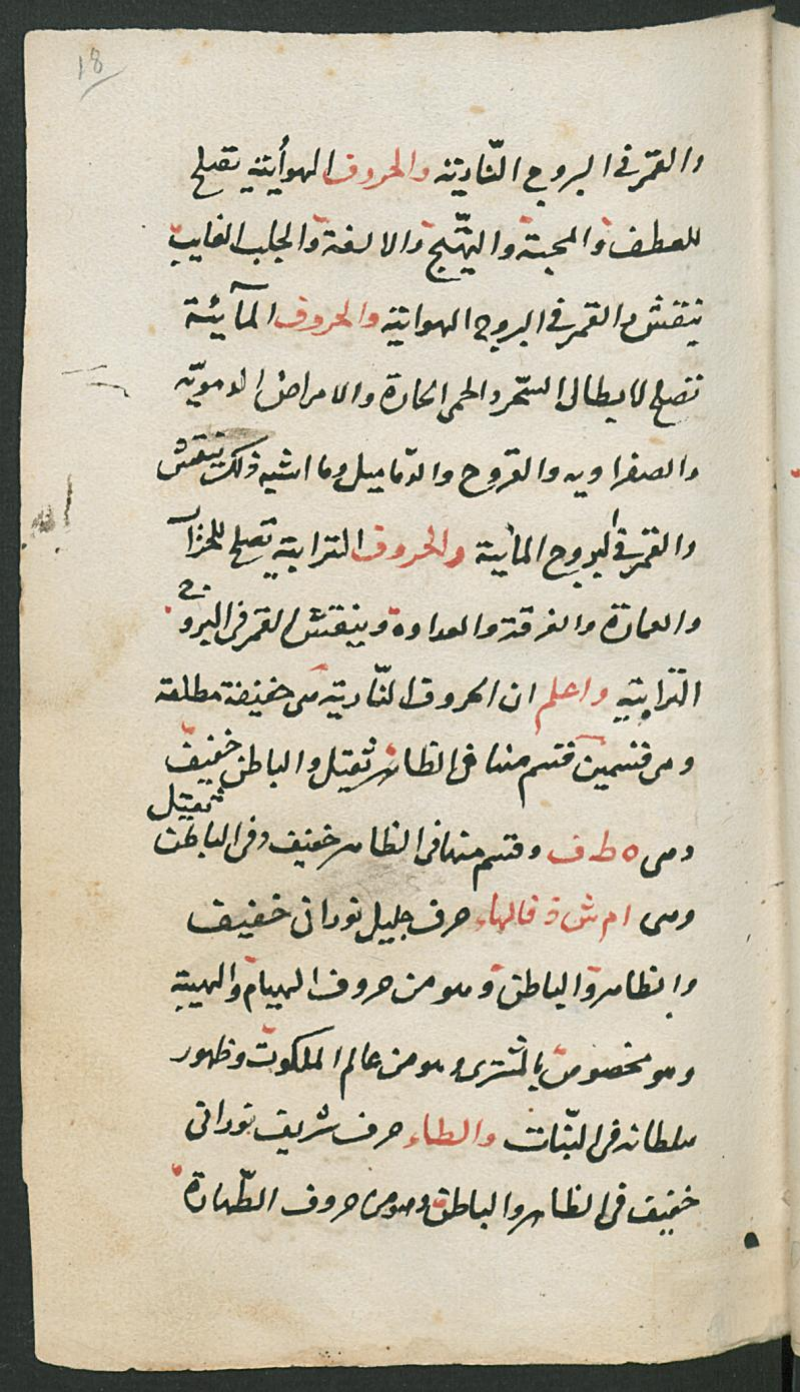 18
والقمر في البروج النّارية والحروف الهوأئية تصلح
للعطف والمحبة والتهّيج والالفة والجلب الغايب
تنقش والقمر في البروج الهوائية والحروف المآئية
تصلح لابطال السّحر والحمى الحارة والامراض الدمويّة
والصفراويه والقروح والدّماميل وما اشبه ذلك تنقش
والقمر في البروج المائية والحروف الترابية تصلح للخراب
والعمارة والفرقة والعداوة وينقش القمر في البروج
التّرابية واعلم ان الحروف النّارية هى خفيفة مطلقة
وهى قسمين قسم منها فى الظاهر ثقيل والباطن خفيف
وهى ه ط ف وقسم منها فى الظاهر خفيف وفى الباطن ثقيل
وهى ا م ش ذ فالهاء حرف جليل نورانى خفيف
والظاهر والباطن وهو من حروف الهيام والهيبة
وهو مخصوص بالمشترى وهو من عالم الملكوت وظهور
سلطانه فى النّبات والطاء حرف شريف نورانى
خفيف فى الظاهر والباطن وهو من حروف الطّهارة